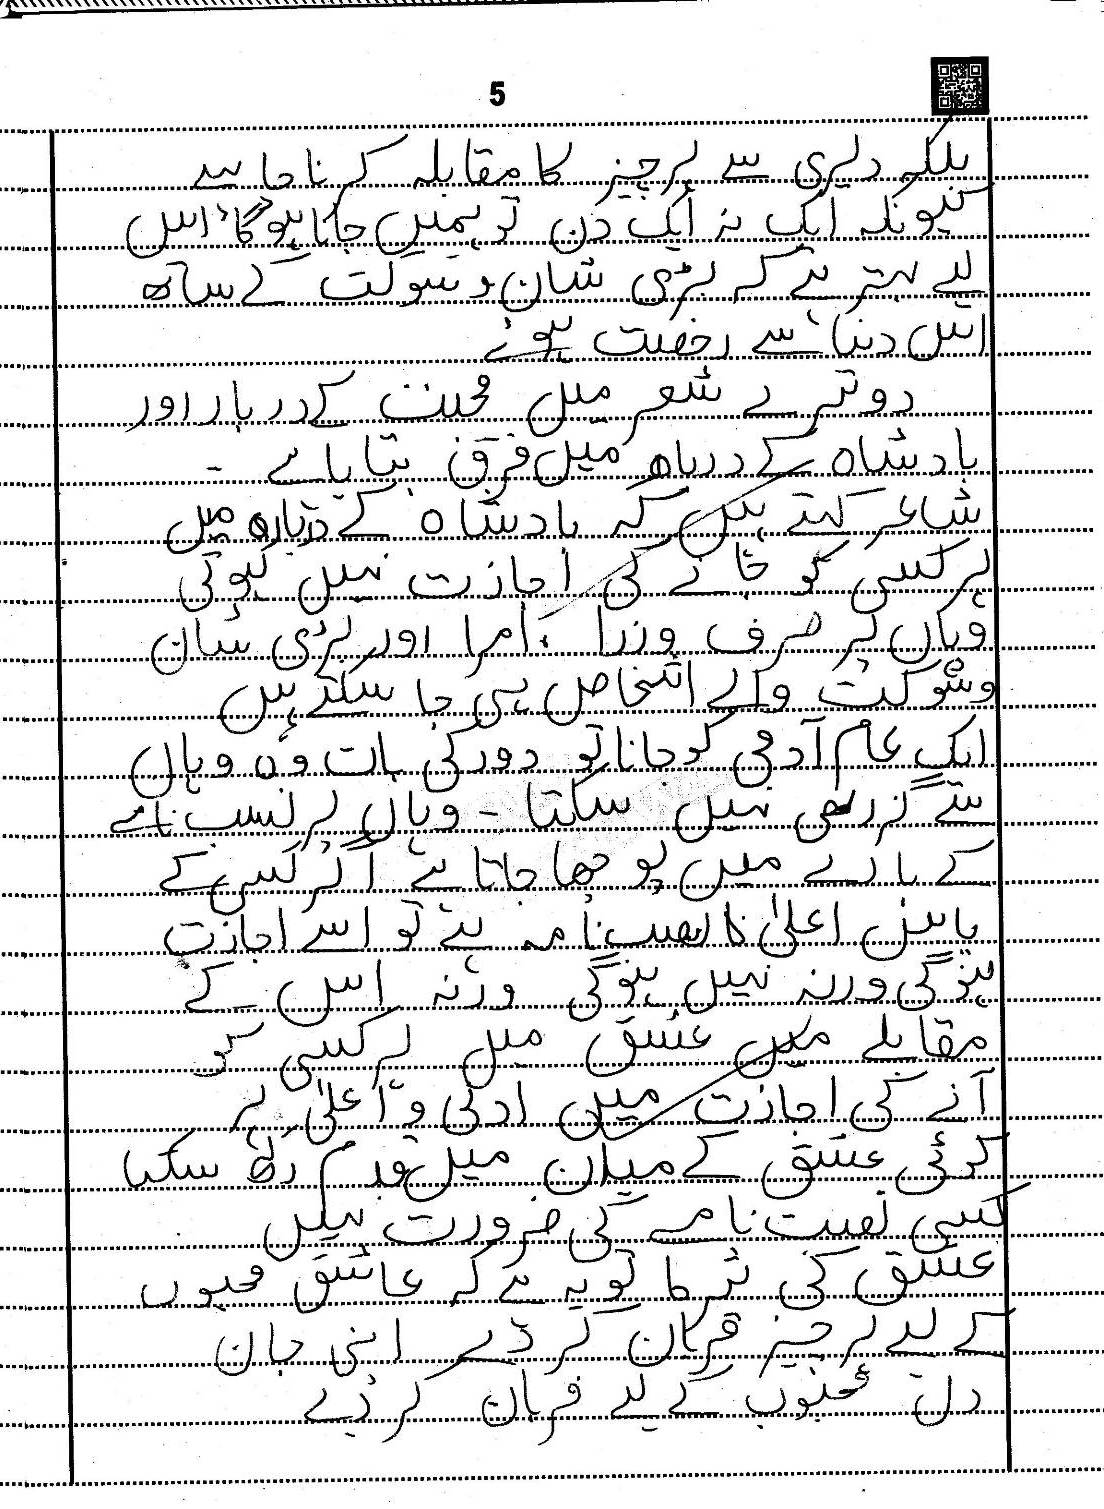 5
بلکہ دلیری سے ہر چیز کا مقابلہ کرنا چاہیے
کیونکہ ایک نہ ایک دن تو ہمیں جانا ہوگا، اس
لیے بہتر ہے کہ بڑی شان و شوکت کے ساتھ
اس دنیا سے رخصت ہوئے
دوسرے شعر میں محبت کے دربار اور
بادشاہ کے درباہ میں فرق بتایا ہے ۔
شاعر کہتے ہیں کہ بادشاہ کے درباہ میں
ہر کسی کو جانے کی اجازت نہیں ہوتی
وہاں پر صرف وزرا ، امرا اور بڑی شان
و شوکت والے اشخاص ہی جا سکتے ہیں
ایک عام آدمی کو جانا تو دور کی بات وہ وہاں
سے گزر بھی نہیں سکتا ۔ وہاں پر نسب نامے
کے بارے میں پوچھا جاتا ہے اگر کسی کے
پاس اعلیٰ کا نصب نامہ ہے تو اسے اجازت
ہوگی ورنہ نہیں ہوگی ورنہ اس کے
مقابلے میں عشق میں ہر کسی کو
آنے کی اجازت میں ادنی و اعلیٰ ہر
کوئی عشق کے میدان میں قدم رکھ سکتا
کسی نصبت نامے کی ضرورت نہیں
عشق کی شرط تو یہ ہے کہ عاشق محبوب
کے لیے ہر چیز قربان کر دے اپنی جان
دل محبوب کے لیے قربان کر دے